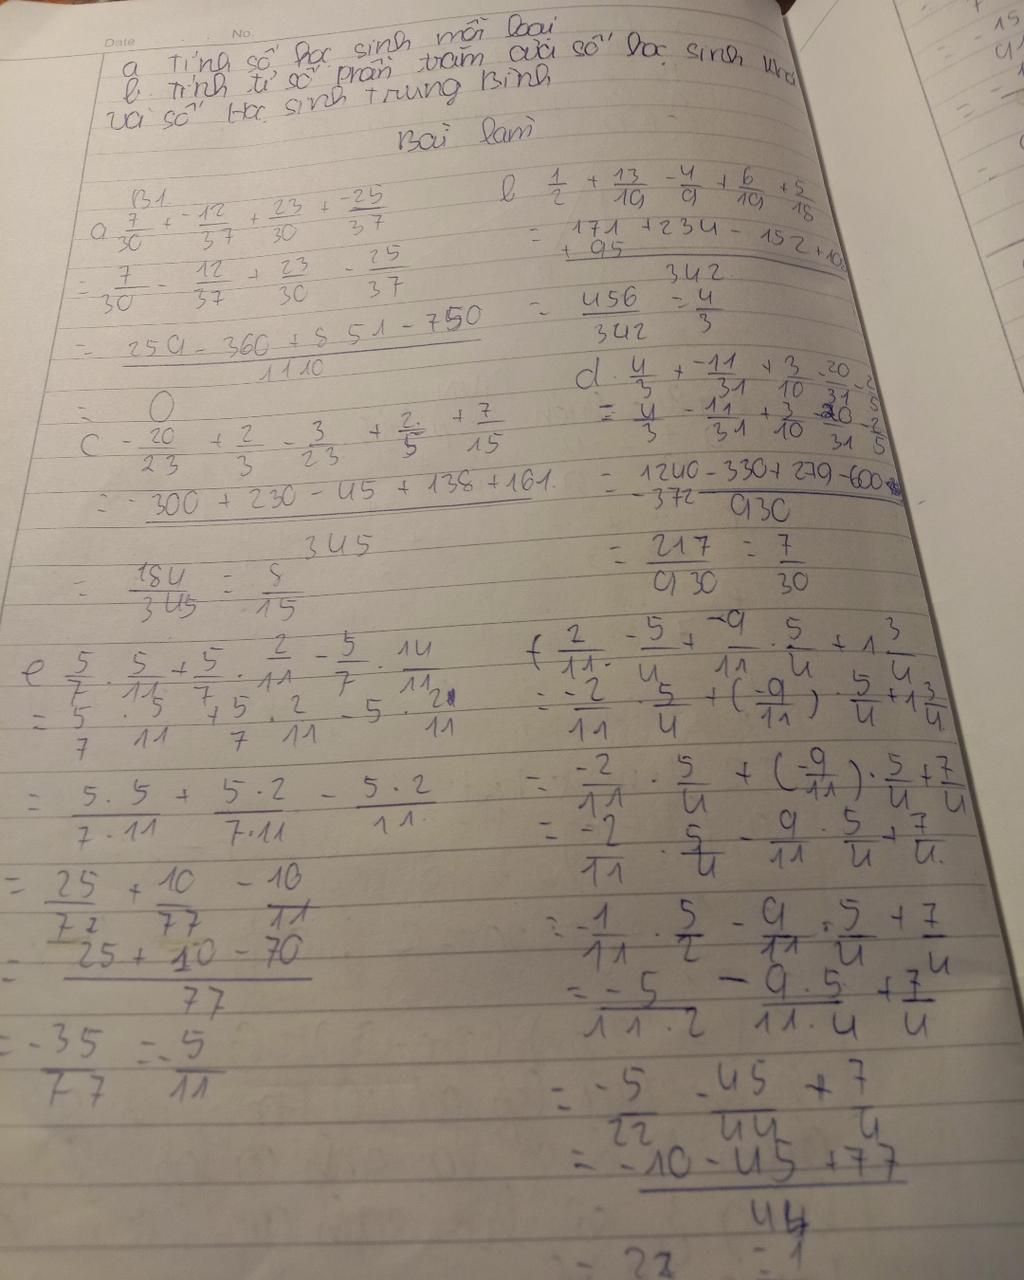 Date No.
a Tính số học sinh mỗi loại
b. Tính tỉ số phần trăm của số học sinh khá
và số Học sinh Trung Bình
Bài làm
B1.
a 7/30 + -12/37 + 23/30 + -25/37
= 7/30 - 12/37 + 23/30 - 25/37
= (259 - 360 + 851 - 750)/1110
= 0
b 1/2 + 13/19 - 4/9 + 6/19 + 5/18
= (171 + 234 - 152 + 108 + 95)/342
= 456/342 = 4/3
c - 20/23 + 2/3 - 3/23 + 2/5 + 7/15
= (- 300 + 230 - 45 + 138 + 161)/345
= 184/345 = 8/15
d. 4/3 + -11/31 + 3/10 - 20/31 - 2/5
= 4/3 - 11/31 + 3/10 - 20/31 - 2/5
= (1240 - 330 + 279 - 600 - 372)/930
= 217/930 = 7/30
e 5/7 . 5/11 + 5/7 . 2/11 - 5/7 . 14/11
= 5/7 . 5/11 + 5/7 . 2/11 - 5 . 2/11
= (5.5)/(7.11) + (5.2)/(7.11) - (5.2)/11
= 25/77 + 10/77 - 10/11
= (25 + 10 - 70)/77
= -35/77 = -5/11
f 2/11 . -5/4 + -9/11 . 5/4 + 1 3/4
= -2/11 . 5/4 + (-9/11) . 5/4 + 1 3/4
= -2/11 . 5/4 + (-9/11) . 5/4 + 7/4
= -2/11 . 5/4 - 9/11 . 5/4 + 7/4
= -1/11 . 5/2 - 9/11 . 5/4 + 7/4
= -5/(11.2) - (9.5)/(11.4) + 7/4
= -5/22 - 45/44 + 7/4
= (-10 - 45 + 77)/44
= 22 = 1